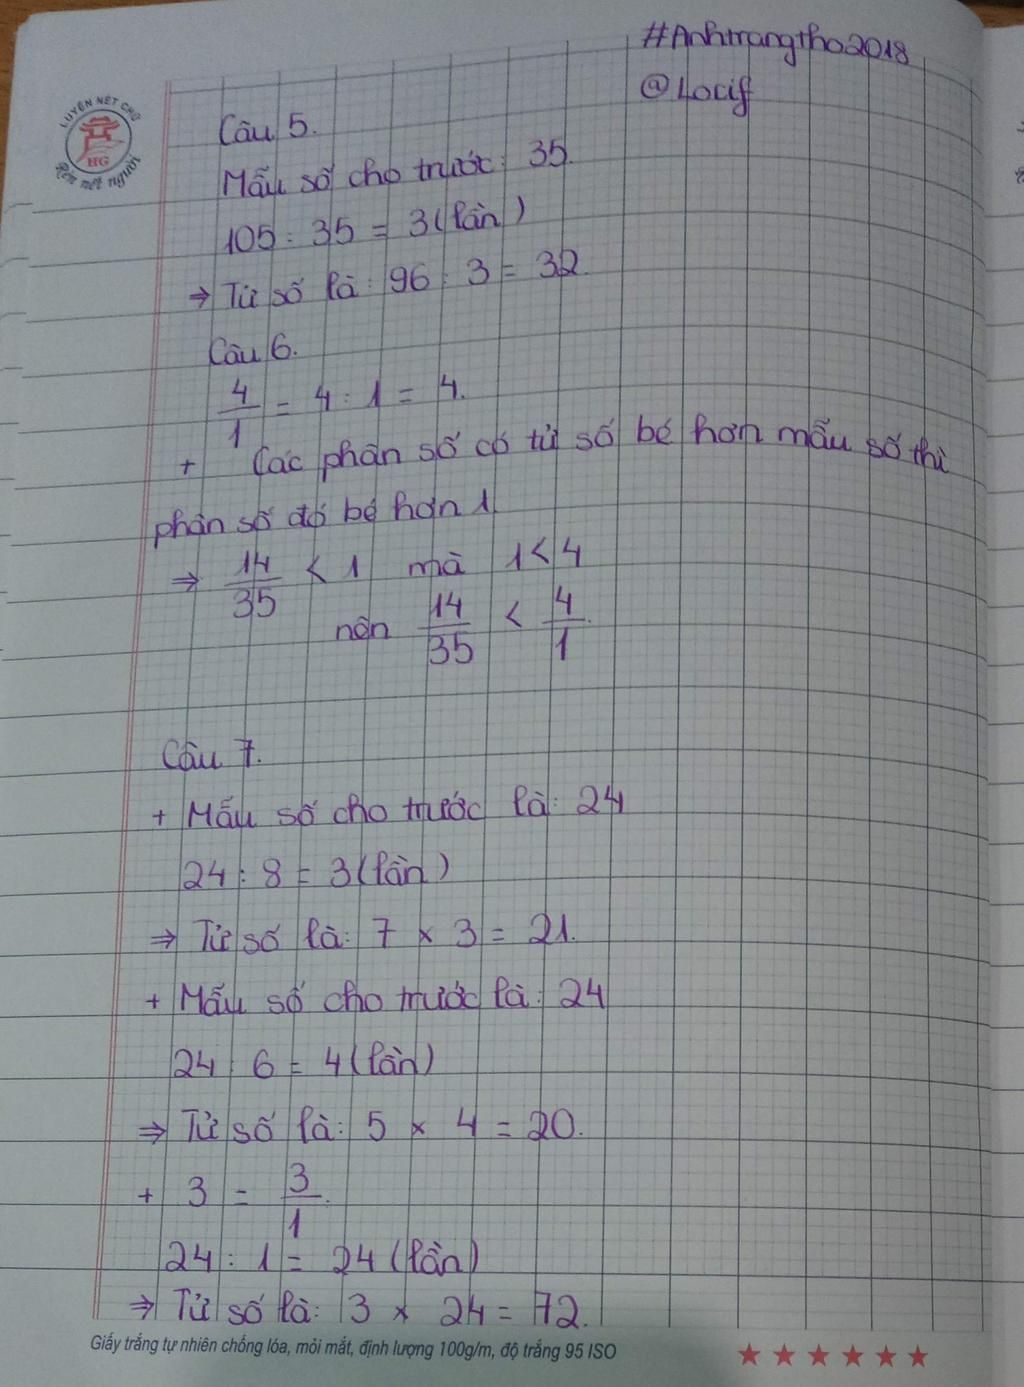 #Anhtrangtho2018
@Locif
LUYỆN NÉT CHỮ
HG
Rèn nết người
Câu 5.
Mẫu số cho trước: 35.
105 : 35 = 3 (lần)
⇒ Tử số là: 96 : 3 = 32.
Câu 6.
4/1 = 4 : 1 = 4.
+ Các phân số có tử số bé hơn mẫu số thì
phân số đó bé hơn 1
⇒ 14/35 < 1 mà 1 < 4
nên 14/35 < 4/1.
Câu 7.
+ Mẫu số cho trước là: 24
24 : 8 = 3 (lần)
⇒ Tử số là: 7 × 3 = 21.
+ Mẫu số cho trước là: 24
24 : 6 = 4 (lần)
⇒ Tử số là: 5 × 4 = 20.
+ 3 = 3/1.
24 : 1 = 24 (lần)
⇒ Tử số là: 3 × 24 = 72.
Giấy trắng tự nhiên chống lóa, mỏi mắt, định lượng 100g/m, độ trắng 95 ISO